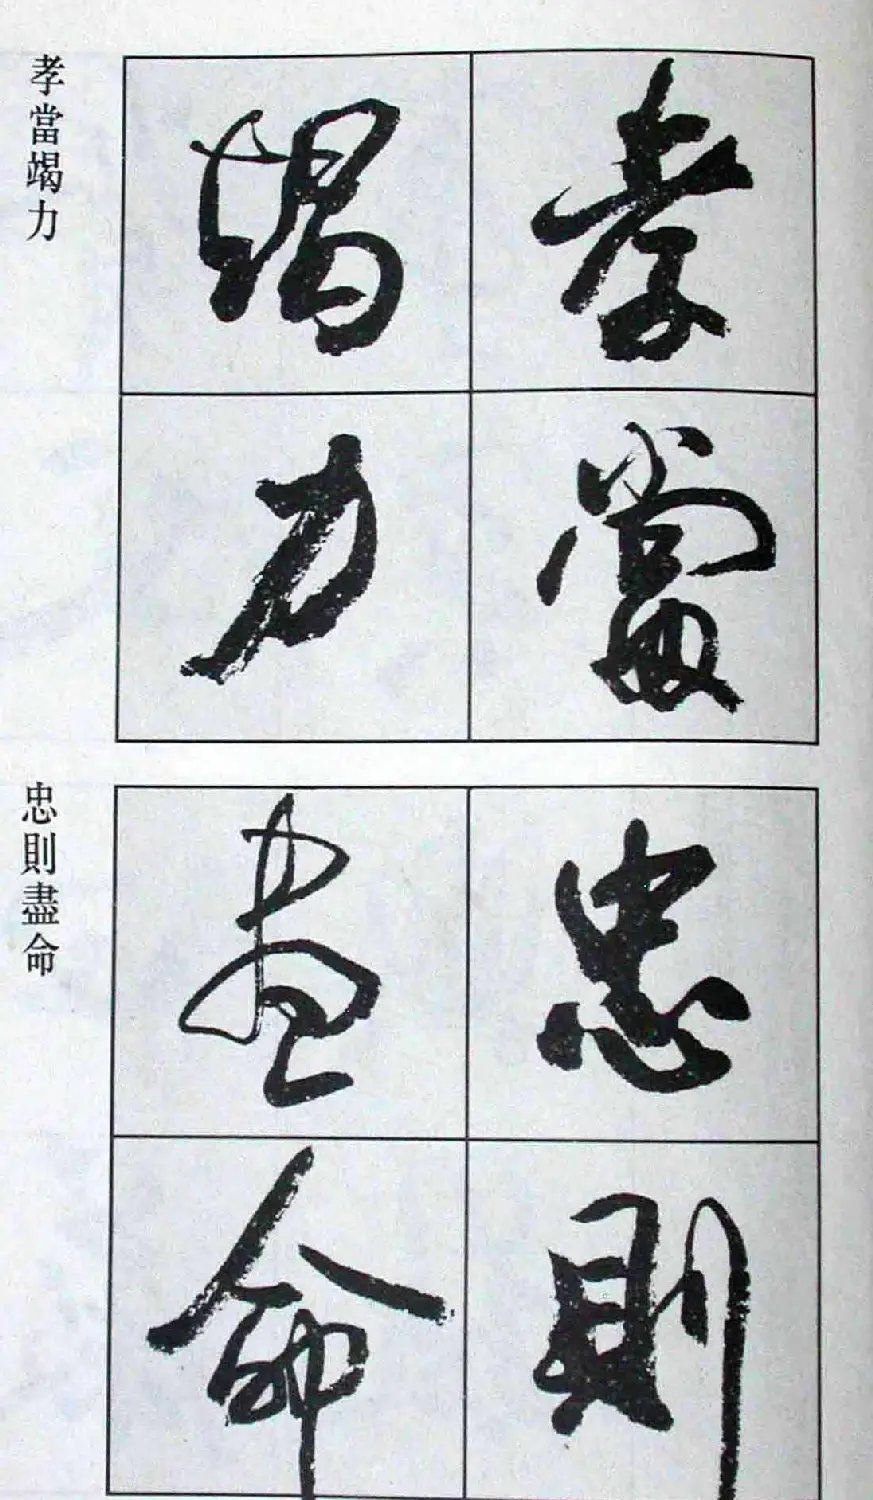 孝當竭力
孝當
竭力
忠則盡命
忠則
盡命